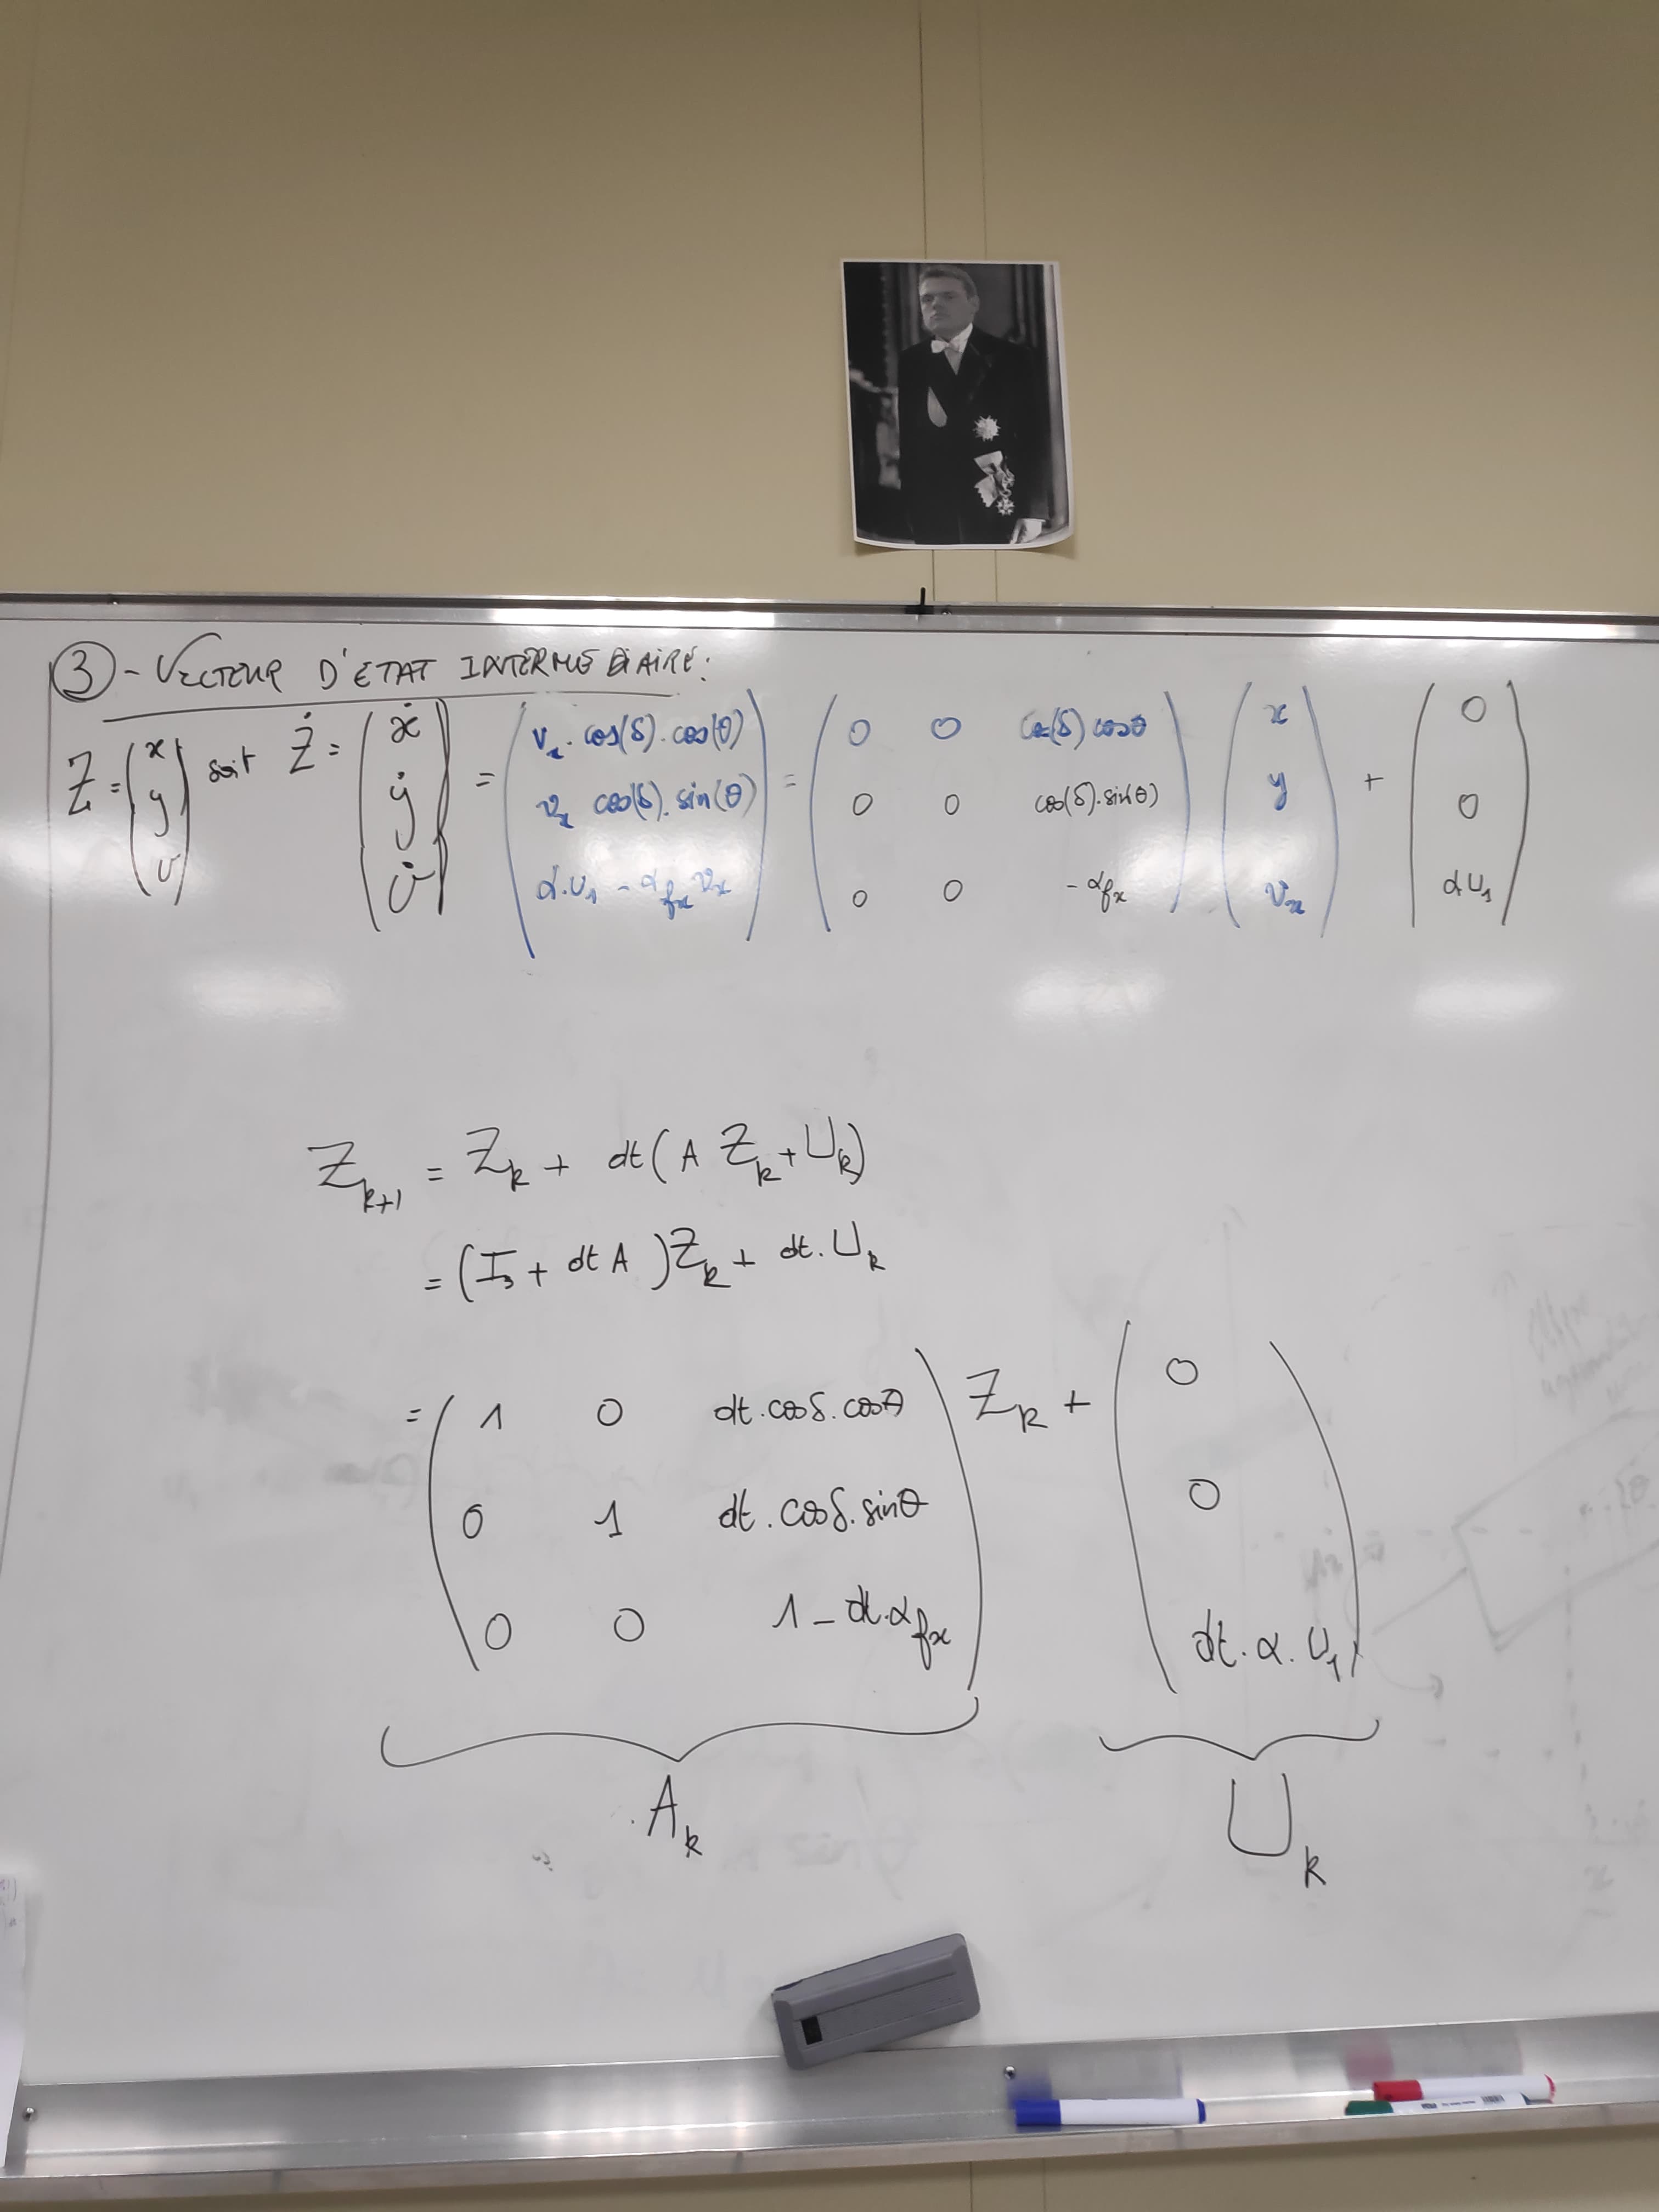 ③ - VECTEUR D'ETAT INTERMEDIAIRE:
Z = (x y v) soit Ż = (ẋ ẏ v̇) = (v_x . cos(δ) . cos(θ) ; v_x cos(δ) . sin(θ) ; α.u₁ - α_fx v_x) = (0 0 cos(δ) cosθ ; 0 0 cos(δ).sin(θ) ; 0 0 -α_fx) (x y v_x) + (0 0 αu₁)
Z_k+1 = Z_k + dt(A Z_k + U_k)
= (I₃ + dt A) Z_k + dt. U_k
= (1 0 dt.cosδ.cosθ ; 0 1 dt.cosδ.sinθ ; 0 0 1 - dt.α_fx) Z_k + (0 0 dt.α.u₁)
A_k U_k